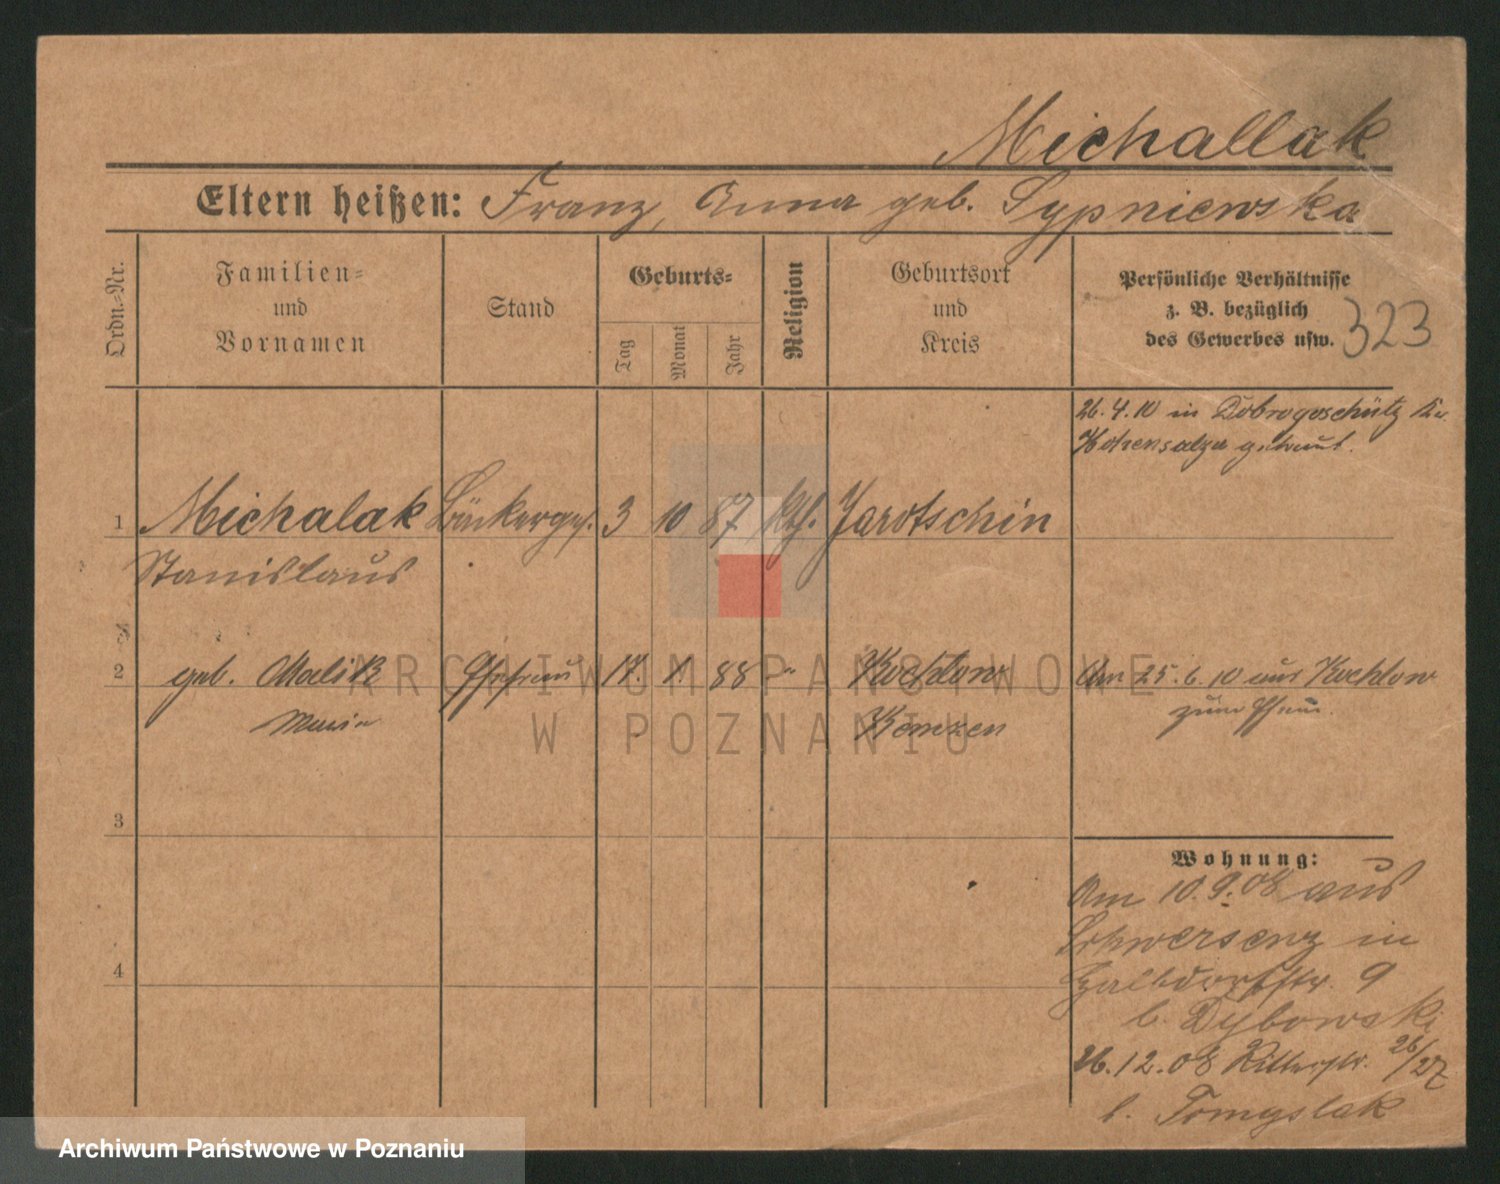 Michallak
Eltern heißen: Franz, Anna geb. Sypniewska
Ordn.-Nr.
Familien-
und
Vornamen
Stand
Geburts-
Tag
Monat
Jahr
Religion
Geburtsort
und
Kreis
Persönliche Verhältnisse
z. B. bezüglich
des Gewerbes usw.
323
26.4.10 in Dobrogoschütz Kr.
Hohensalza getraut.
1 Michalak Bäckerges. 3 10 87 kth. Jarotschin
Stanislaus
2 geb. Malik Ehefrau 17. 1 88 " Kochlow
Maria Kempen
Am 25.6.10 aus Kochlow
zum Ehem.
3
4
Wohnung:
Am 10.9.08 aus
Schwersenz in
Halbdorfstr. 9
b. Dybowski
26.12.08 Ritterstr. 26/27
b. Tomyslak
ARCHIWUM PAŃSTWOWE
W POZNANIU
Archiwum Państwowe w Poznaniu